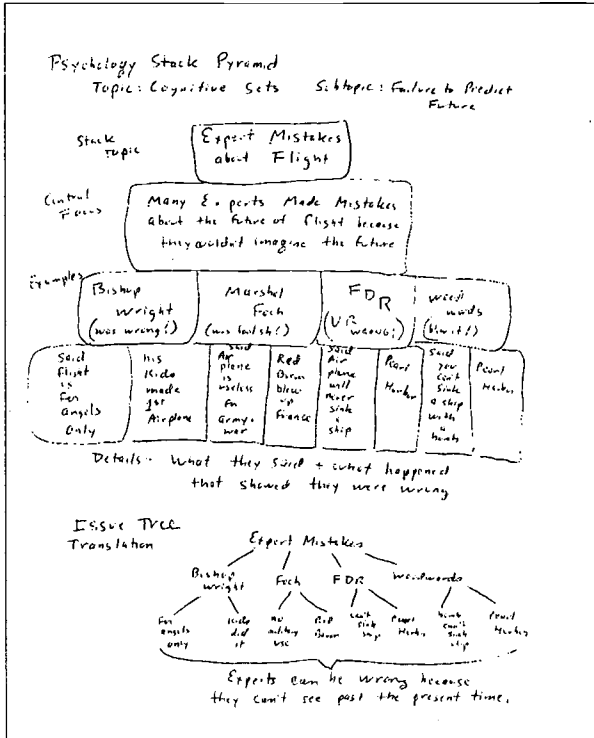 Psychology Stack Pyramid
Topic: Cognitive Sets Subtopic: Failure to Predict
Future
Stack
Topic
Expert Mistakes
about Flight
Central
Focus
Many Experts Made Mistakes
about the future of flight because
they couldn't imagine the future
Examples
Bishop
Wright
(was wrong!)
Marshal
Foch
(was foolish!)
FDR
(VR WRONG!)
(blew it!)
Said
flight
is
for
angels
only
His
Kids
made
1st
Airplone
Said
Air
plane
is
useless
for
army-
war
Red
Baron
blew
up
France
Said
Air
plane
will
never
sink
a
ship
Pearl
Harbor
Said
you
can't
sink
a ship
with
a
bomb
Pearl
Harbor
Details - What they said + what happened
that showed they were wrong
Issue Tree
Translation
Expert Mistakes
Bishop
Wright
Foch
FDR
Woodwords
For
angels
only
Kids
did
it
no
military
use
Red
Baron
can't
sink
ship
Pearl
Harbor
bomb
can't
sink
ship
Pearl
Harbor
Experts can be wrong because
they can't see past the present time.